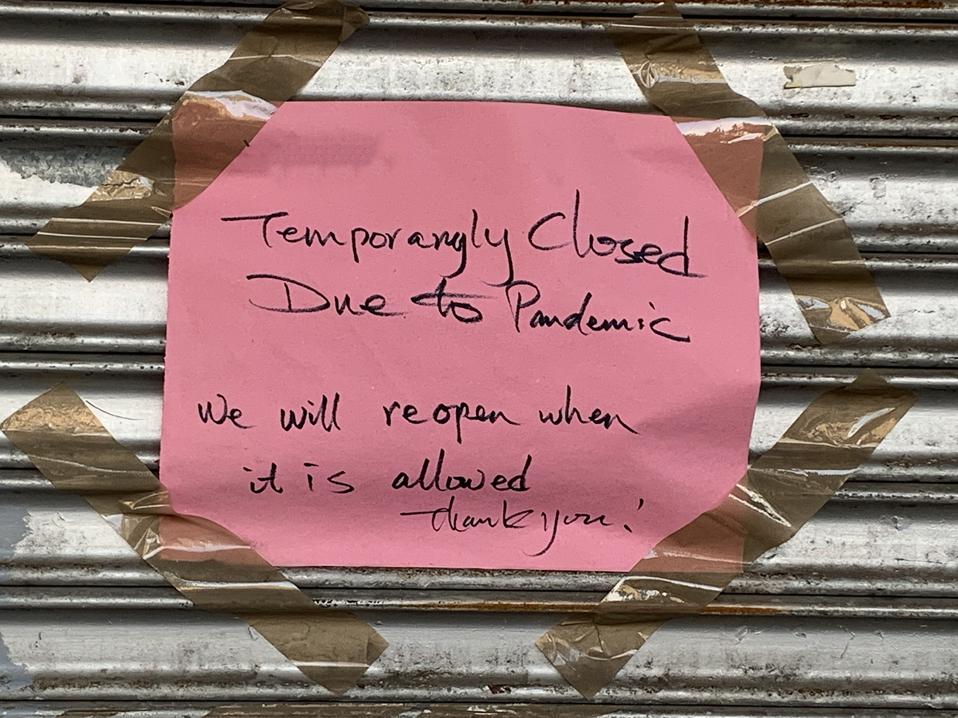 Temporangly Closed
Due to Pandemic
We will reopen when
it is allowed
Thank you!